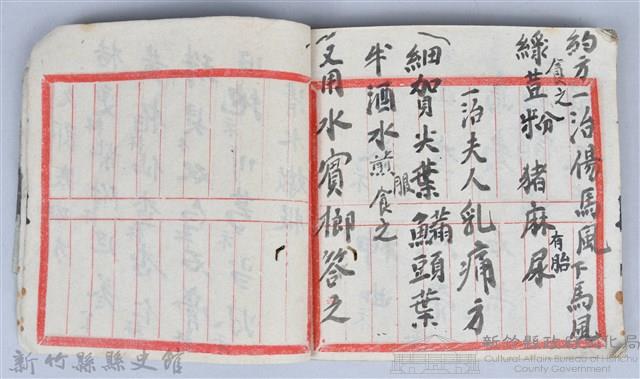 約方一治傷馬風下馬風
食之 有胎
綠荳粉 猪麻尿
一治夫人乳痛方
細賀尖葉 鱊頭葉
半酒水煎服食之
又用水賓榔答之
新竹縣縣史館
新竹縣政府文化局
Cultural Affairs Bureau of Hsinchu
County Government